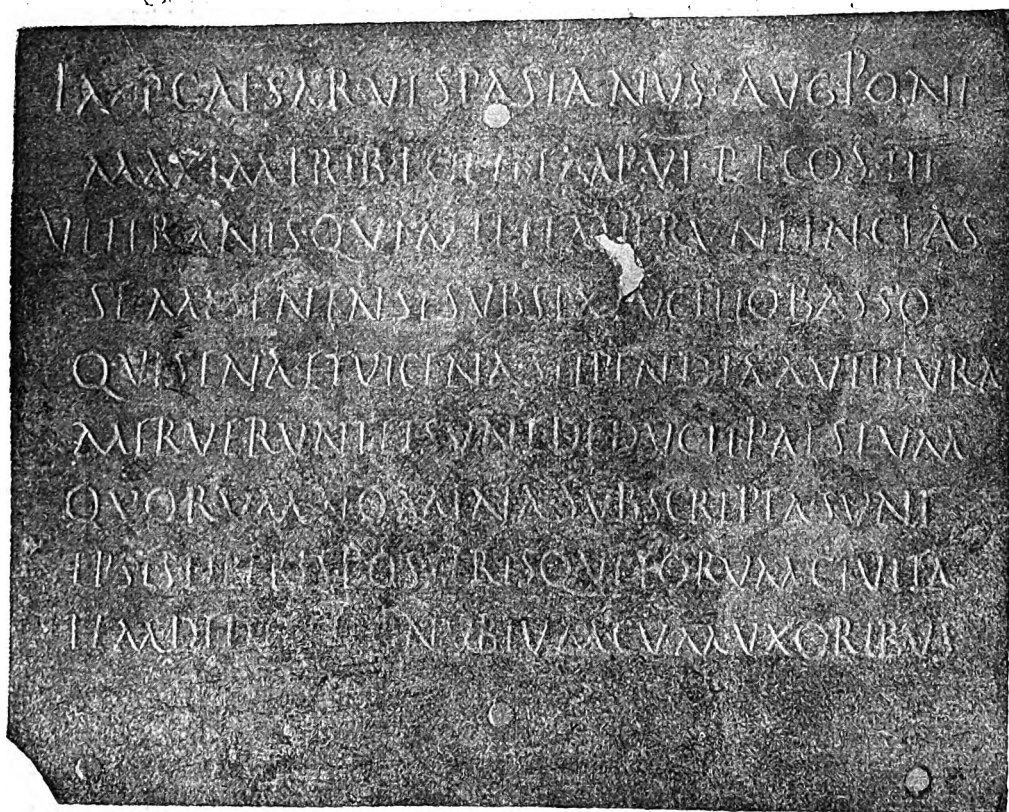 IMP CAESAR VESPASIANVS AVG PONT
MAXIM TRIB POT II IMP VI P P COS III
VETERANIS QVI MILITAVERVNT IN CLAS
SE MISENENSE SVB SEX LVCILIO BASSO
QVI SENA ET VICENA STIPENDIA AVT PLVRA
MERVERVNT ET SVNT DEDVCTI PAESTVM
QVORVM NOMINA SVBSCRIPTA SVNT
IPSIS LIBERIS POSTERISQVE EORVM CIVITA
TEM DEDIT ET CONVBIVM CVM VXORIBVS